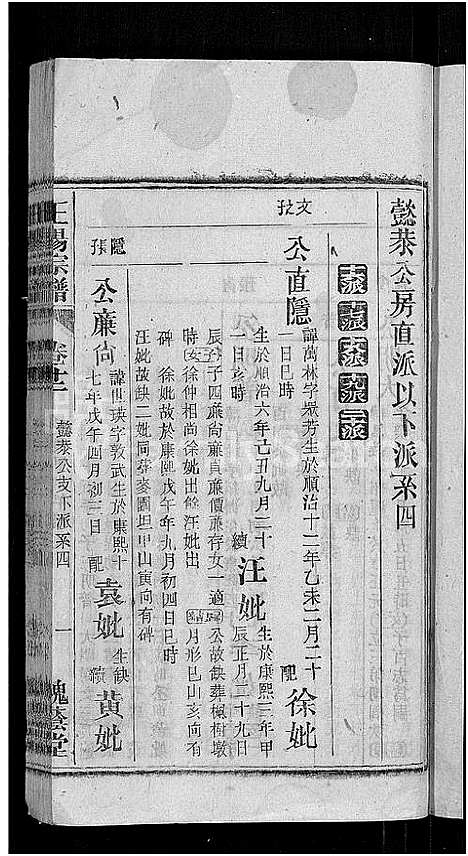 懿恭公房直派以下派系四
文 公直隱
諱萬林字眾芳生於順治十二年乙未二月二十
一日巳時
配 徐妣
生於順治六年己丑九月二十
一日亥時
續 汪妣
生於康熙三年甲
辰正月二十九日
辰 子四廉尚廉貞廉價廉存女一適 公故缺葬楓樹墩
時 女 徐仲相尚徐妣出餘汪妣出 月形巳山亥向有
碑 徐妣故於康熙戊午年九月初四日巳時
汪妣故缺二妣同葬麥園坦甲山寅向有碑
隱 公廉尚
諱世瑛字敦武生於康熙十
七年戊午四月初三日
配 袁妣 生缺
續 黃妣
王楊宗譜
卷廿二
懿恭公支下派系四
一
槐蔭堂